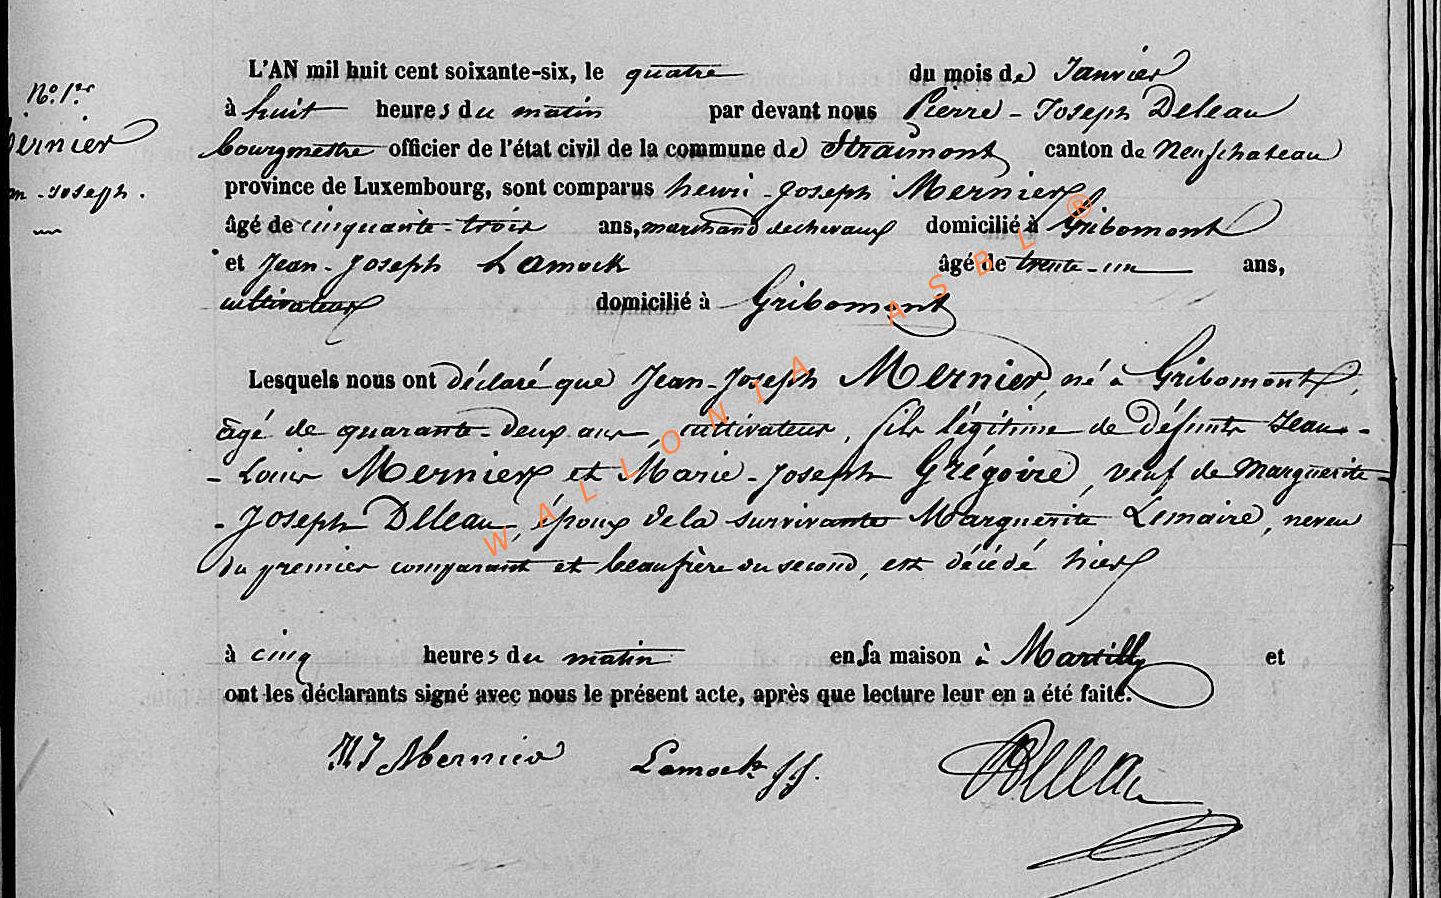 N.o 1.er
Mernier
Jean-Joseph.
L'AN mil huit cent soixante-six, le quatre du mois de Janvier
à huit heures du matin par devant nous Pierre-Joseph Deleau
bourgmestre officier de l'état civil de la commune de Straimont canton de Neufchateau
province de Luxembourg, sont comparus henri-Joseph Mernier
âgé de cinquante-trois ans, marchand de chevaux domicilié à Gribomont
et Jean-Joseph Lamock âgé de trente-un ans,
cultivateur domicilié à Gribomont
Lesquels nous ont déclaré que Jean-Joseph Mernier, né à Gribomont,
âgé de quarante-deux ans, cultivateur, fils légitime de défunts Jean-
-Louis Mernier et Marie-Joseph Grégoire, veuf de Marguerite-
-Joseph Deleau, époux de la survivante Marguerite Lemaire, neveu
du premier comparant et beaufrère du second, est décédé hier
à cinq heures du matin en sa maison à Martilly et
ont les déclarants signé avec nous le présent acte, après que lecture leur en a été faite.
HJ Mernier Lamock JJ. Deleau
WALLONIA ASBL ®